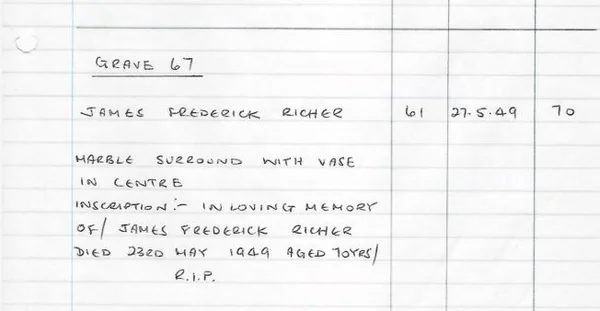 GRAVE 67
JAMES FREDERICK RICHER 61 27.5.49 70
MARBLE SURROUND WITH VASE
IN CENTRE
INSCRIPTION:- IN LOVING MEMORY
OF/ JAMES FREDERICK RICHER
DIED 23RD MAY 1949 AGED 70YRS/
R.I.P.